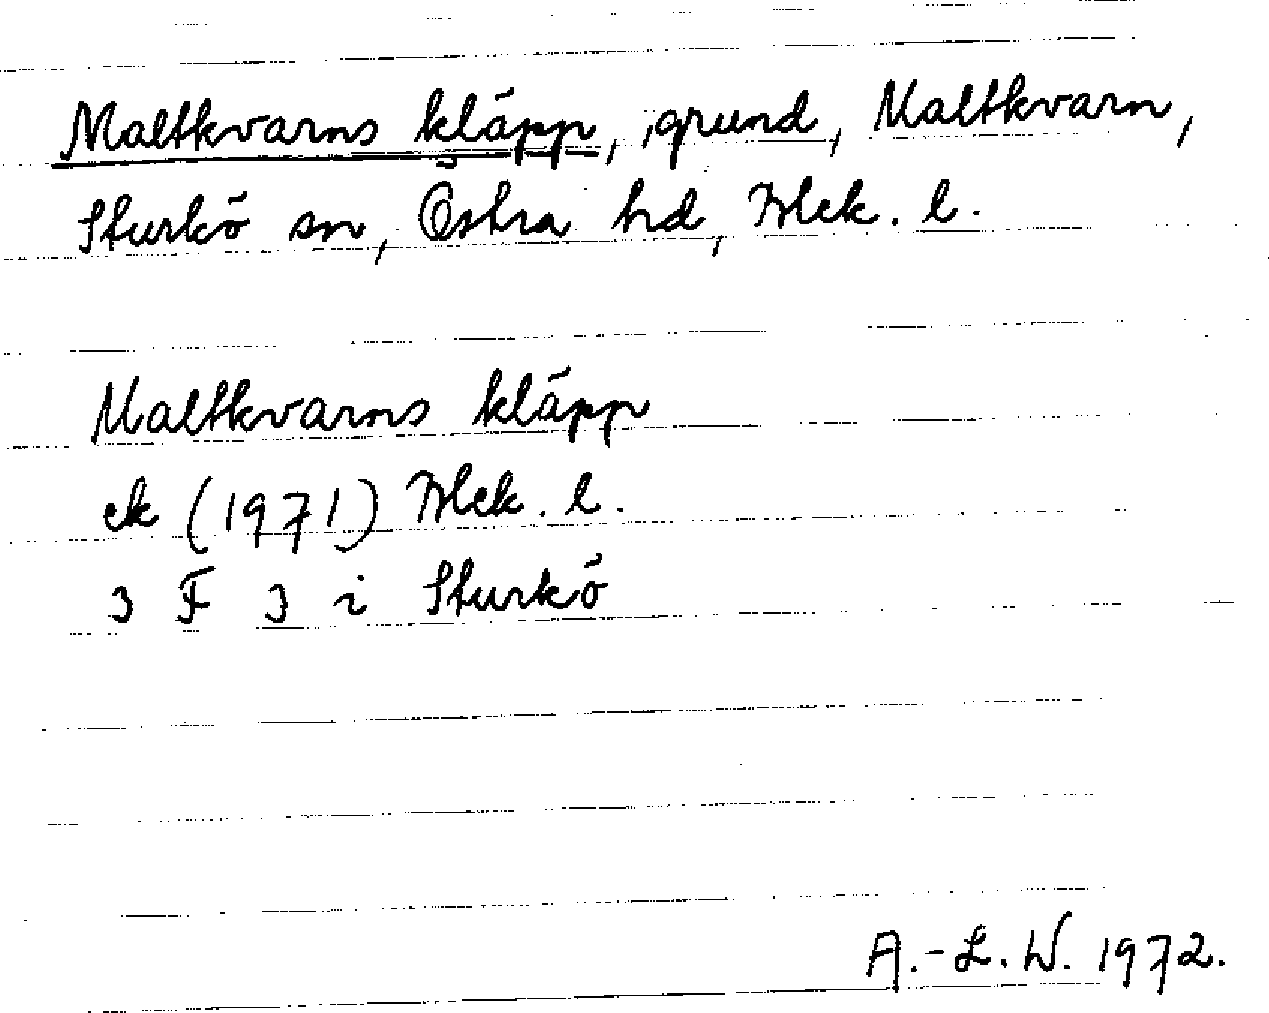 Maltkvarns kläpp, grund, Maltkvarn,
Sturkö sn, Östra hd, Blek. l.
Maltkvarns kläpp
ek (1971) Blek. l.
3 F 3 i Sturkö
A.-L. W. 1972.